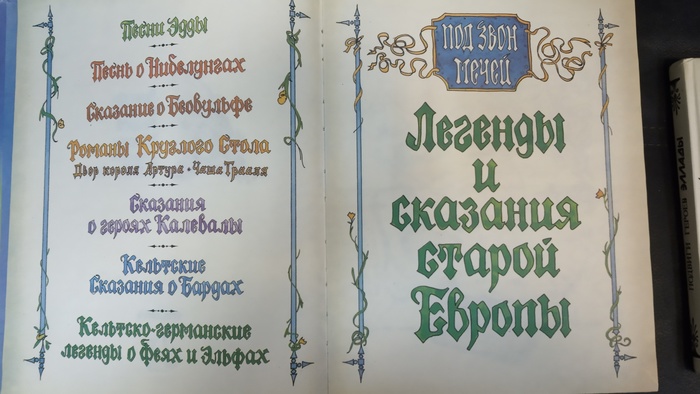 Песни Эдды
Песнь о Нибелунгах
Сказание о Беовульфе
Романы Круглого Стола
Двор короля Артура • Чаша Грааля
Сказания
о героях Калевалы
Кельтские
Сказания о Бардах
Кельтско-германские
легенды о феях и Эльфах
ПОД ЗВОН
МЕЧЕЙ
Легенды
и
сказания
старой
Европы
ГЕРОЕВ ЭЛЛАДЫ